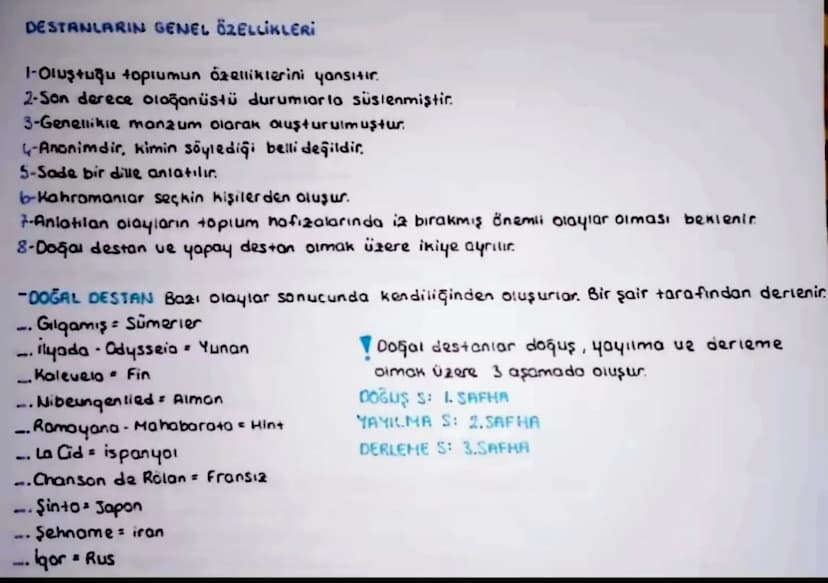 DESTANLARIN GENEL ÖZELLİKLERİ
1-Oluştuğu toplumun özelliklerini yansıtır.
2-Son derece olağanüstü durumlarla süslenmiştir.
3-Genellikle manzum olarak oluşturulmuştur.
4-Anonimdir, kimin söylediği belli değildir.
5-Sade bir dille anlatılır.
6-Kahramanlar seçkin kişilerden oluşur.
7-Anlatılan olayların toplum hafızalarında iz bırakmış önemli olaylar olması beklenir.
8-Doğal destan ve yapay destan olmak üzere ikiye ayrılır.
-DOĞAL DESTAN Bazı olaylar sonucunda kendiliğinden oluşurlar. Bir şair tarafından derlenir.
... Gılgamış = Sümerler
... İlyada - Odysseia = Yunan
... Kalevela = Fin
... Nibelungenlied = Alman
... Ramayana - Mahabarata = Hint
... La Cid = İspanyol
... Chanson de Rölan = Fransız
... Şinto = Japon
... Şehname = İran
... İgor = Rus
! Doğal destanlar doğuş, yayılma ve derleme
olmak üzere 3 aşamada oluşur.
DOĞUŞ S: 1. SAFHA
YAYILMA S: 2. SAFHA
DERLEME S: 3. SAFHA